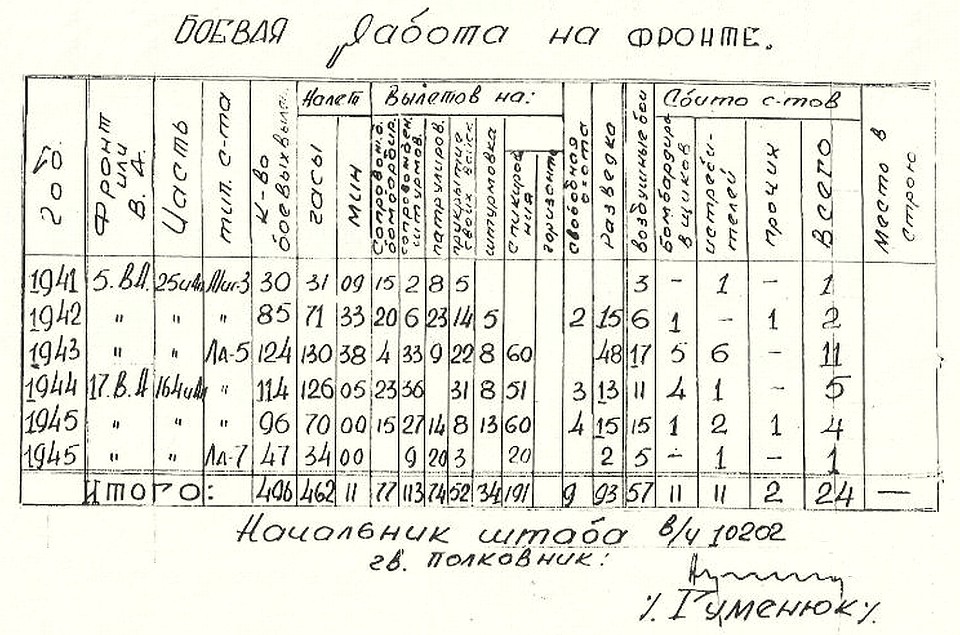 БОЕВАЯ Работа на ФРОНТЕ.
год. Фронт или В.А. Часть тип. с-та К-во боевых выл. Налет Вылетов на: свободная охота разведка воздушные бои Сбито с-тов Место в строю
часы мин Сопровожд. бомбардир. сопровожден. штурмов. патрулиров. прикрытие своих войск штурмовка спикирования горизонт. бомбардировщиков истребителей прочих Всего
1941 5.ВА. 25иАп Миг-3 30 31 09 15 2 8 5 3 - 1 - 1
1942 " " " 85 71 33 20 6 23 14 5 2 15 6 1 - 1 2
1943 " " Ла-5 124 130 38 4 33 9 22 8 60 48 17 5 6 - 11
1944 17.В.А 164иАп " 114 126 05 23 36 31 8 51 3 13 11 4 1 - 5
1945 " " " 96 70 00 15 27 14 8 13 60 4 15 15 1 2 1 4
1945 " " Ла-7 47 34 00 9 20 3 20 2 5 - 1 - 1
ИТОГО: 496 462 11 77 113 74 52 34 191 9 93 57 11 11 2 24 —
Начальник штаба в/ч 10202
гв. полковник:
/. Гуменюк /.